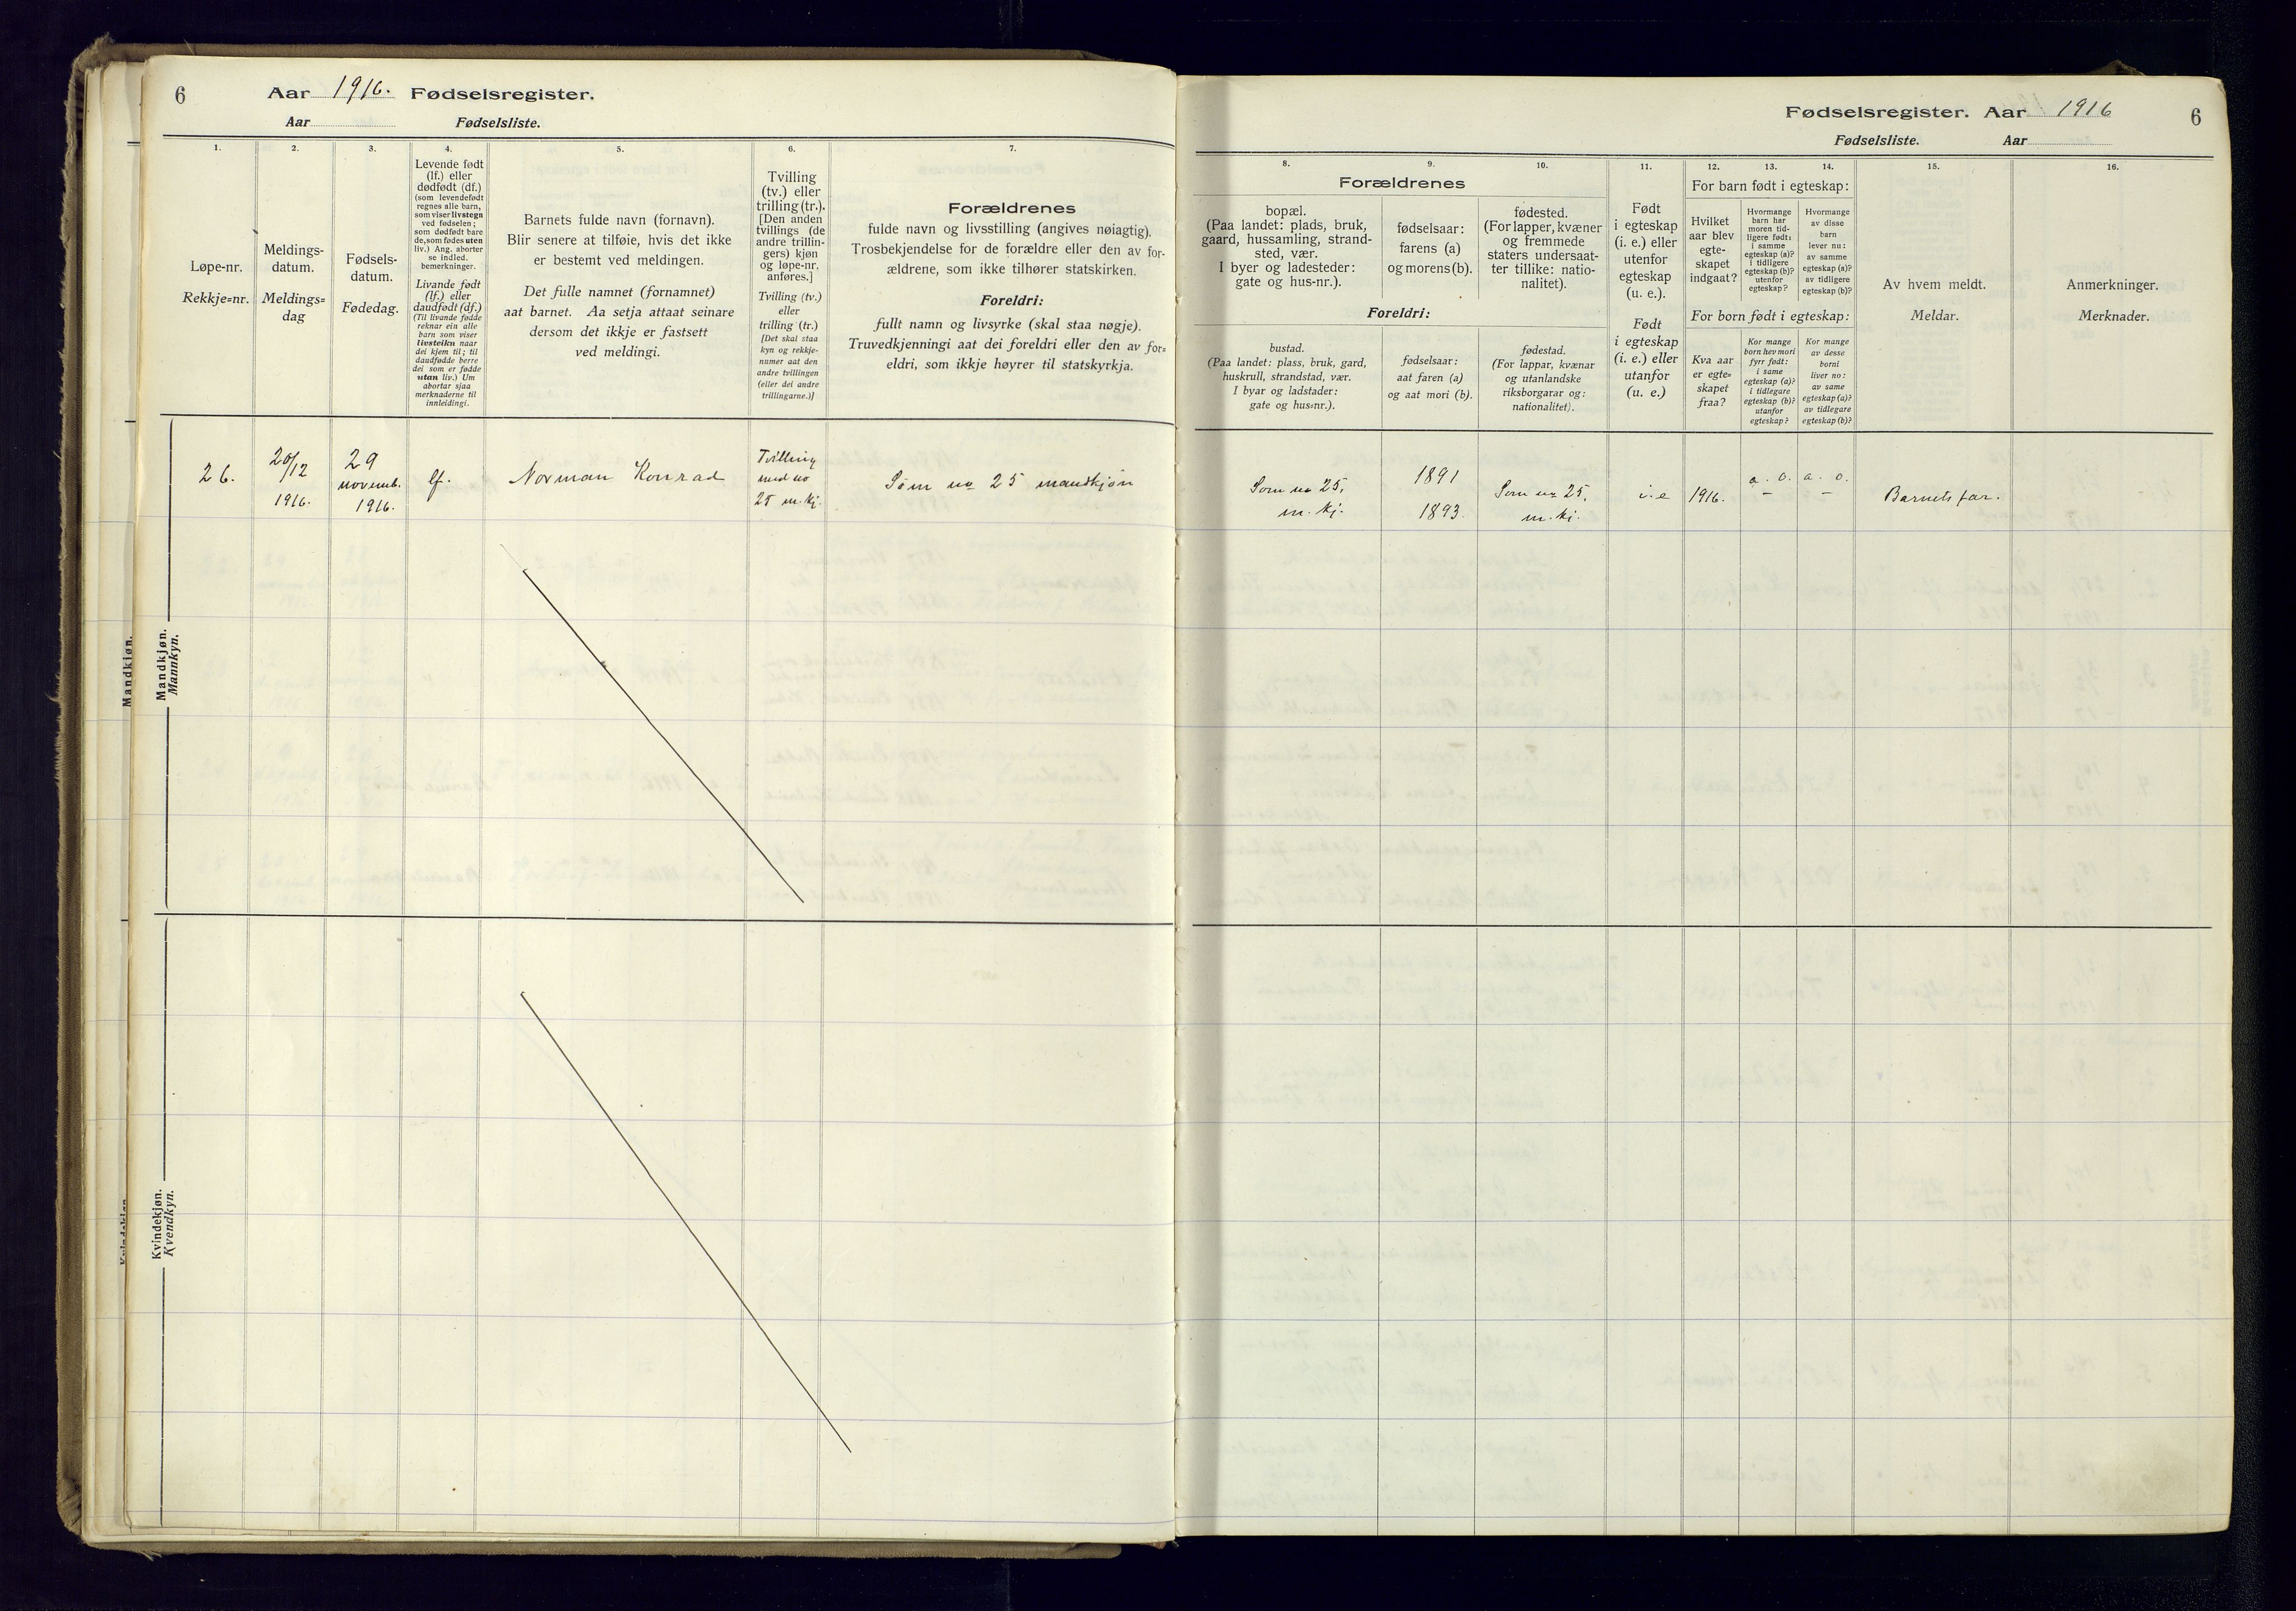 6
Aar 1916. Fødselsregister.
Aar Fødselsliste.
1.
2.
3.
4.
5.
6.
7.
Løpe-nr.
Rekkje=nr.
Meldings-
datum.
Meldings=
dag
Fødsels-
datum.
Fødedag.
Levende født
(lf.) eller
dødfødt (df.)
(som levendefødt
regnes alle barn,
som viser livstegn
ved fødselen;
som dødfødt bare
de, som fødes uten
liv.) Ang. aborter
se indled.
bemerkninger.
Livande født
(lf.) eller
daudfødt (df.)
(Til livande fødde
reknar ein alle
barn som viser
livsteikn naar
dei kjem til; til
daudfødde berre
dei som er fødde
utan liv.) Um
abortar sjaa
merknaderne til
innleidingi.
Barnets fulde navn (fornavn).
Blir senere at tilføie, hvis det ikke
er bestemt ved meldingen.
Det fulle namnet (fornamnet)
aat barnet. Aa setja attaat seinare
dersom det ikkje er fastsett
ved meldingi.
Tvilling
(tv.) eller
trilling (tr.).
[Den anden
tvillings (de
andre trillin-
gers) kjøn
og løpe-nr.
anføres.]
Tvilling (tv.)
eller
trilling (tr.)
[Det skal staa
kyn og rekkje-
numer aat den
andre tvillingen
(eller dei andre
trillingarne.)]
Forældrenes
fulde navn og livsstilling (angives nøiagtig).
Trosbekjendelse for de forældre eller den av for-
ældrene, som ikke tilhører statskirken.
Foreldri:
fullt namn og livsyrke (skal staa nøgje).
Truvedkjenningi aat dei foreldri eller den av for=
eldri, som ikkje høyrer til statskyrkja.
Mandkjøn.
Mandkjøn.
Mannkyn.
26.
20/12
1916.
29
novemb.
1916.
lf.
Norman Konrad
Tvilling
med no
25 m. kj.
Som no 25 mandkjøn
Kvindekjøn.
Kvendkyn.
Fødselsregister. Aar 1916
6
Fødselsliste. Aar
8.
9.
10.
11.
12.
13.
14.
15.
16.
Forældrenes
bopæl.
(Paa landet: plads, bruk,
gaard, hussamling, strand-
sted, vær.
I byer og ladesteder:
gate og hus-nr.).
fødselsaar:
farens (a)
og morens (b).
fødested.
(For lapper, kvæner
og fremmede
staters undersaat-
ter tillike: natio-
nalitet).
Foreldri:
bustad.
(Paa landet: plass, bruk, gard,
huskrull, strandstad, vær.
I byar og ladstader:
gate og hus=nr.).
fødselsaar:
aat faren (a)
og aat mori (b).
fødestad.
(For lappar, kvænar
og utanlandske
riksborgarar og:
nationalitet).
Født
i egteskap
(i. e.) eller
utenfor
egteskap
(u. e.).
Født
i egteskap
(i. e.) eller
utanfor
(u. e.)
For barn født i egteskap:
Hvilket
aar blev
egte-
skapet
indgaat?
Hvormange
barn har
moren tid-
ligere født:
i samme
egteskap (a)?
i tidligere
egteskap (b)?
utenfor
egteskap?
Hvormange
av disse
barn
lever nu:
av samme
egteskap (a)?
av tidligere
egteskap (b)?
For born født i egteskap:
Kva aar
er egte=
skapet
fraa?
Kor mange
born hev mori
fyrr født:
i same
egteskap (a)?
i tidlegare
egteskap (b)?
utanfor
egteskap?
Kor mange
av desse
borni
liver no:
av same
egteskap (a)?
av tidlegare
egteskap (b)?
Av hvem meldt.
Meldar.
Anmerkninger.
Merknader.
Som no 25,
m. kj.
1891
1893.
Som no 25,
m. kj.
i. e
1916.
a. o.
–
a. o.
–
Barnets far.